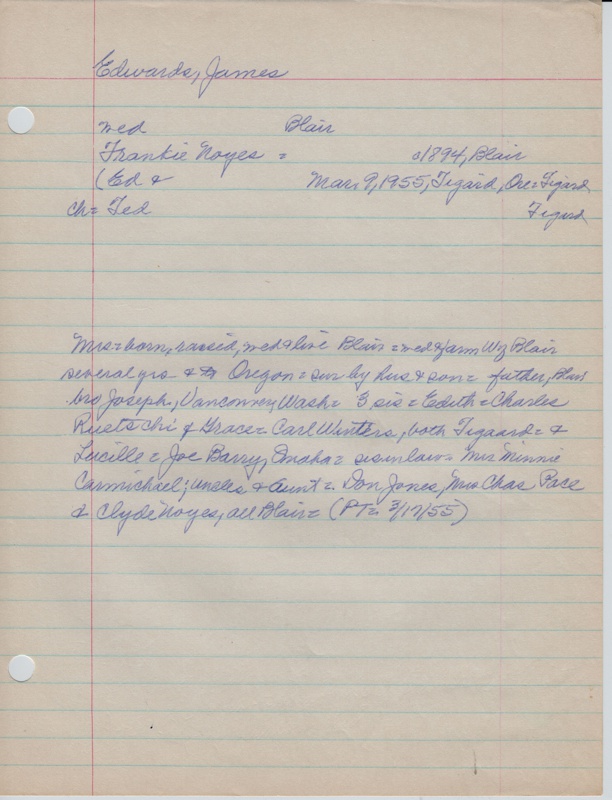 Edwards, James
med Blair
Frankie Noyes = c1894, Blair
(Ed & Mar. 9, 1955, Tigard, Ore = Tigard
ch = Ted Tigard
Mrs = born, raised, med & live Blair = med & farm W of Blair
several yrs & Oregon = sur by hus & son = father, Blair
bro Joseph, Vancouver, Wash = 3 sis = Edith = Charles
Rustschi & Grace = Carl Winters, both Tigaard = &
Lucille = Joe Barry, Omaha = sis in law = Mrs Minnie
Carmichael; uncles & aunt = Don Jones, Mrs Chas Pace
& Clyde Noyes, all Blair = (PT = 3/17/55)